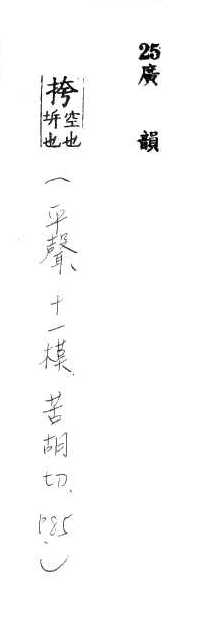 25廣韻
挎空也坼也(平聲、十一模、苦胡切、P.85.)